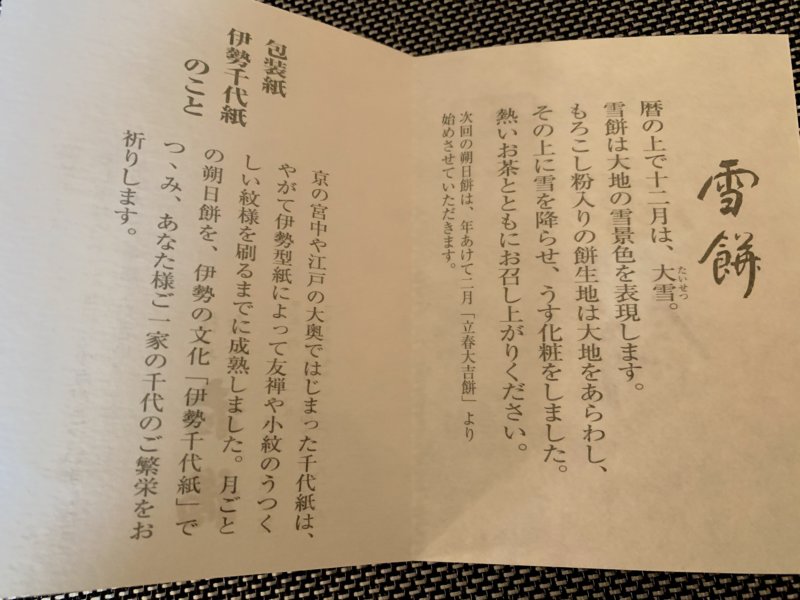 雪餅
暦の上で十二月は、大雪。
たいせつ
雪餅は大地の雪景色を表現します。
もろこし粉入りの餅生地は大地をあらわし、
その上に雪を降らせ、うす化粧をしました。
熱いお茶とともにお召し上がりください。
次回の朔日餅は、年あけて二月「立春大吉餅」より
始めさせていただきます。
包装紙
伊勢千代紙
のこと
京の宮中や江戸の大奥ではじまった千代紙は、
やがて伊勢型紙によって友禅や小紋のうつく
しい紋様を刷るまでに成熟しました。月ごと
の朔日餅を、伊勢の文化「伊勢千代紙」で
つゝみ、あなた様ご一家の千代のご繁栄をお
祈りします。